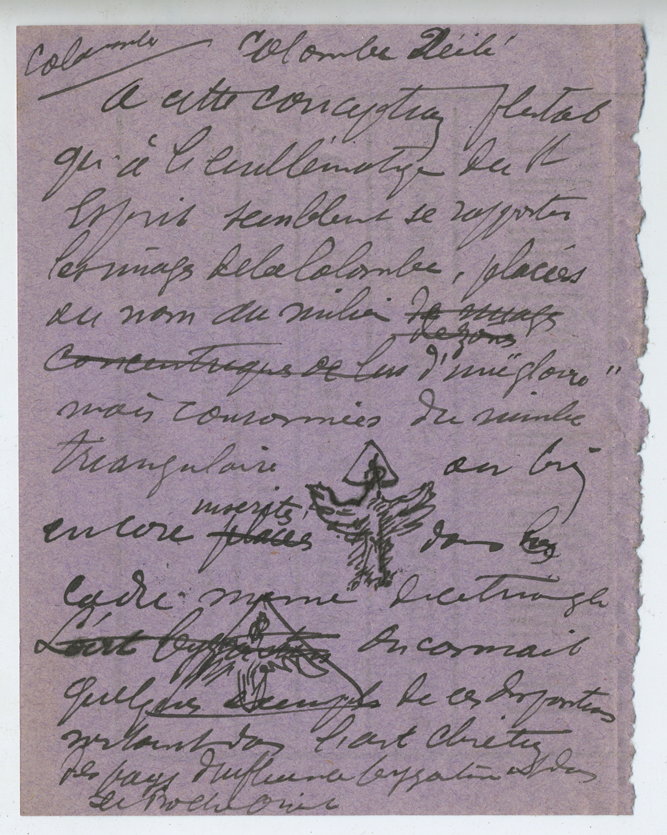 Colombe Colombe Déité
A cette conception plutôt
qu'à l'emblématique du St
Esprit semblent se rapporter
les images de la Colombe, placées
ou non au milieu de nuages
de zones
concentriques de las d'une "gloire"
mais couronnées du nimbe
triangulaire ou bien
inscrits
encore placés dans les
cadre même de ce triangle
L'art byzantin On connait
quelques exemples de ces dispositions
surtout dans l'art chrétien
des pays d'influence byzantine et dans
le Proche Orient